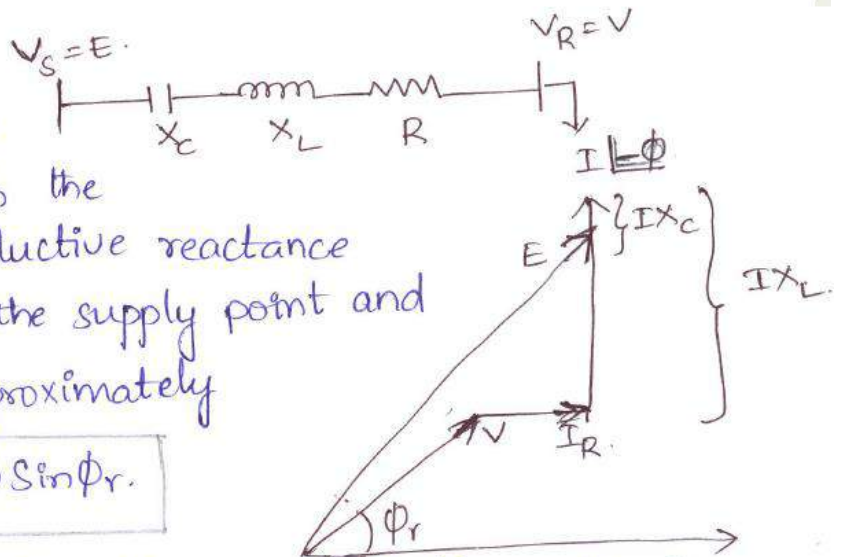 V_S = E.
V_R = V
X_C X_L R
I ∠-φ
the
ductive reactance
the supply point and
roximately
Sinφ_r.
E
} IX_C
} IX_L.
V
I_R.
φ_r